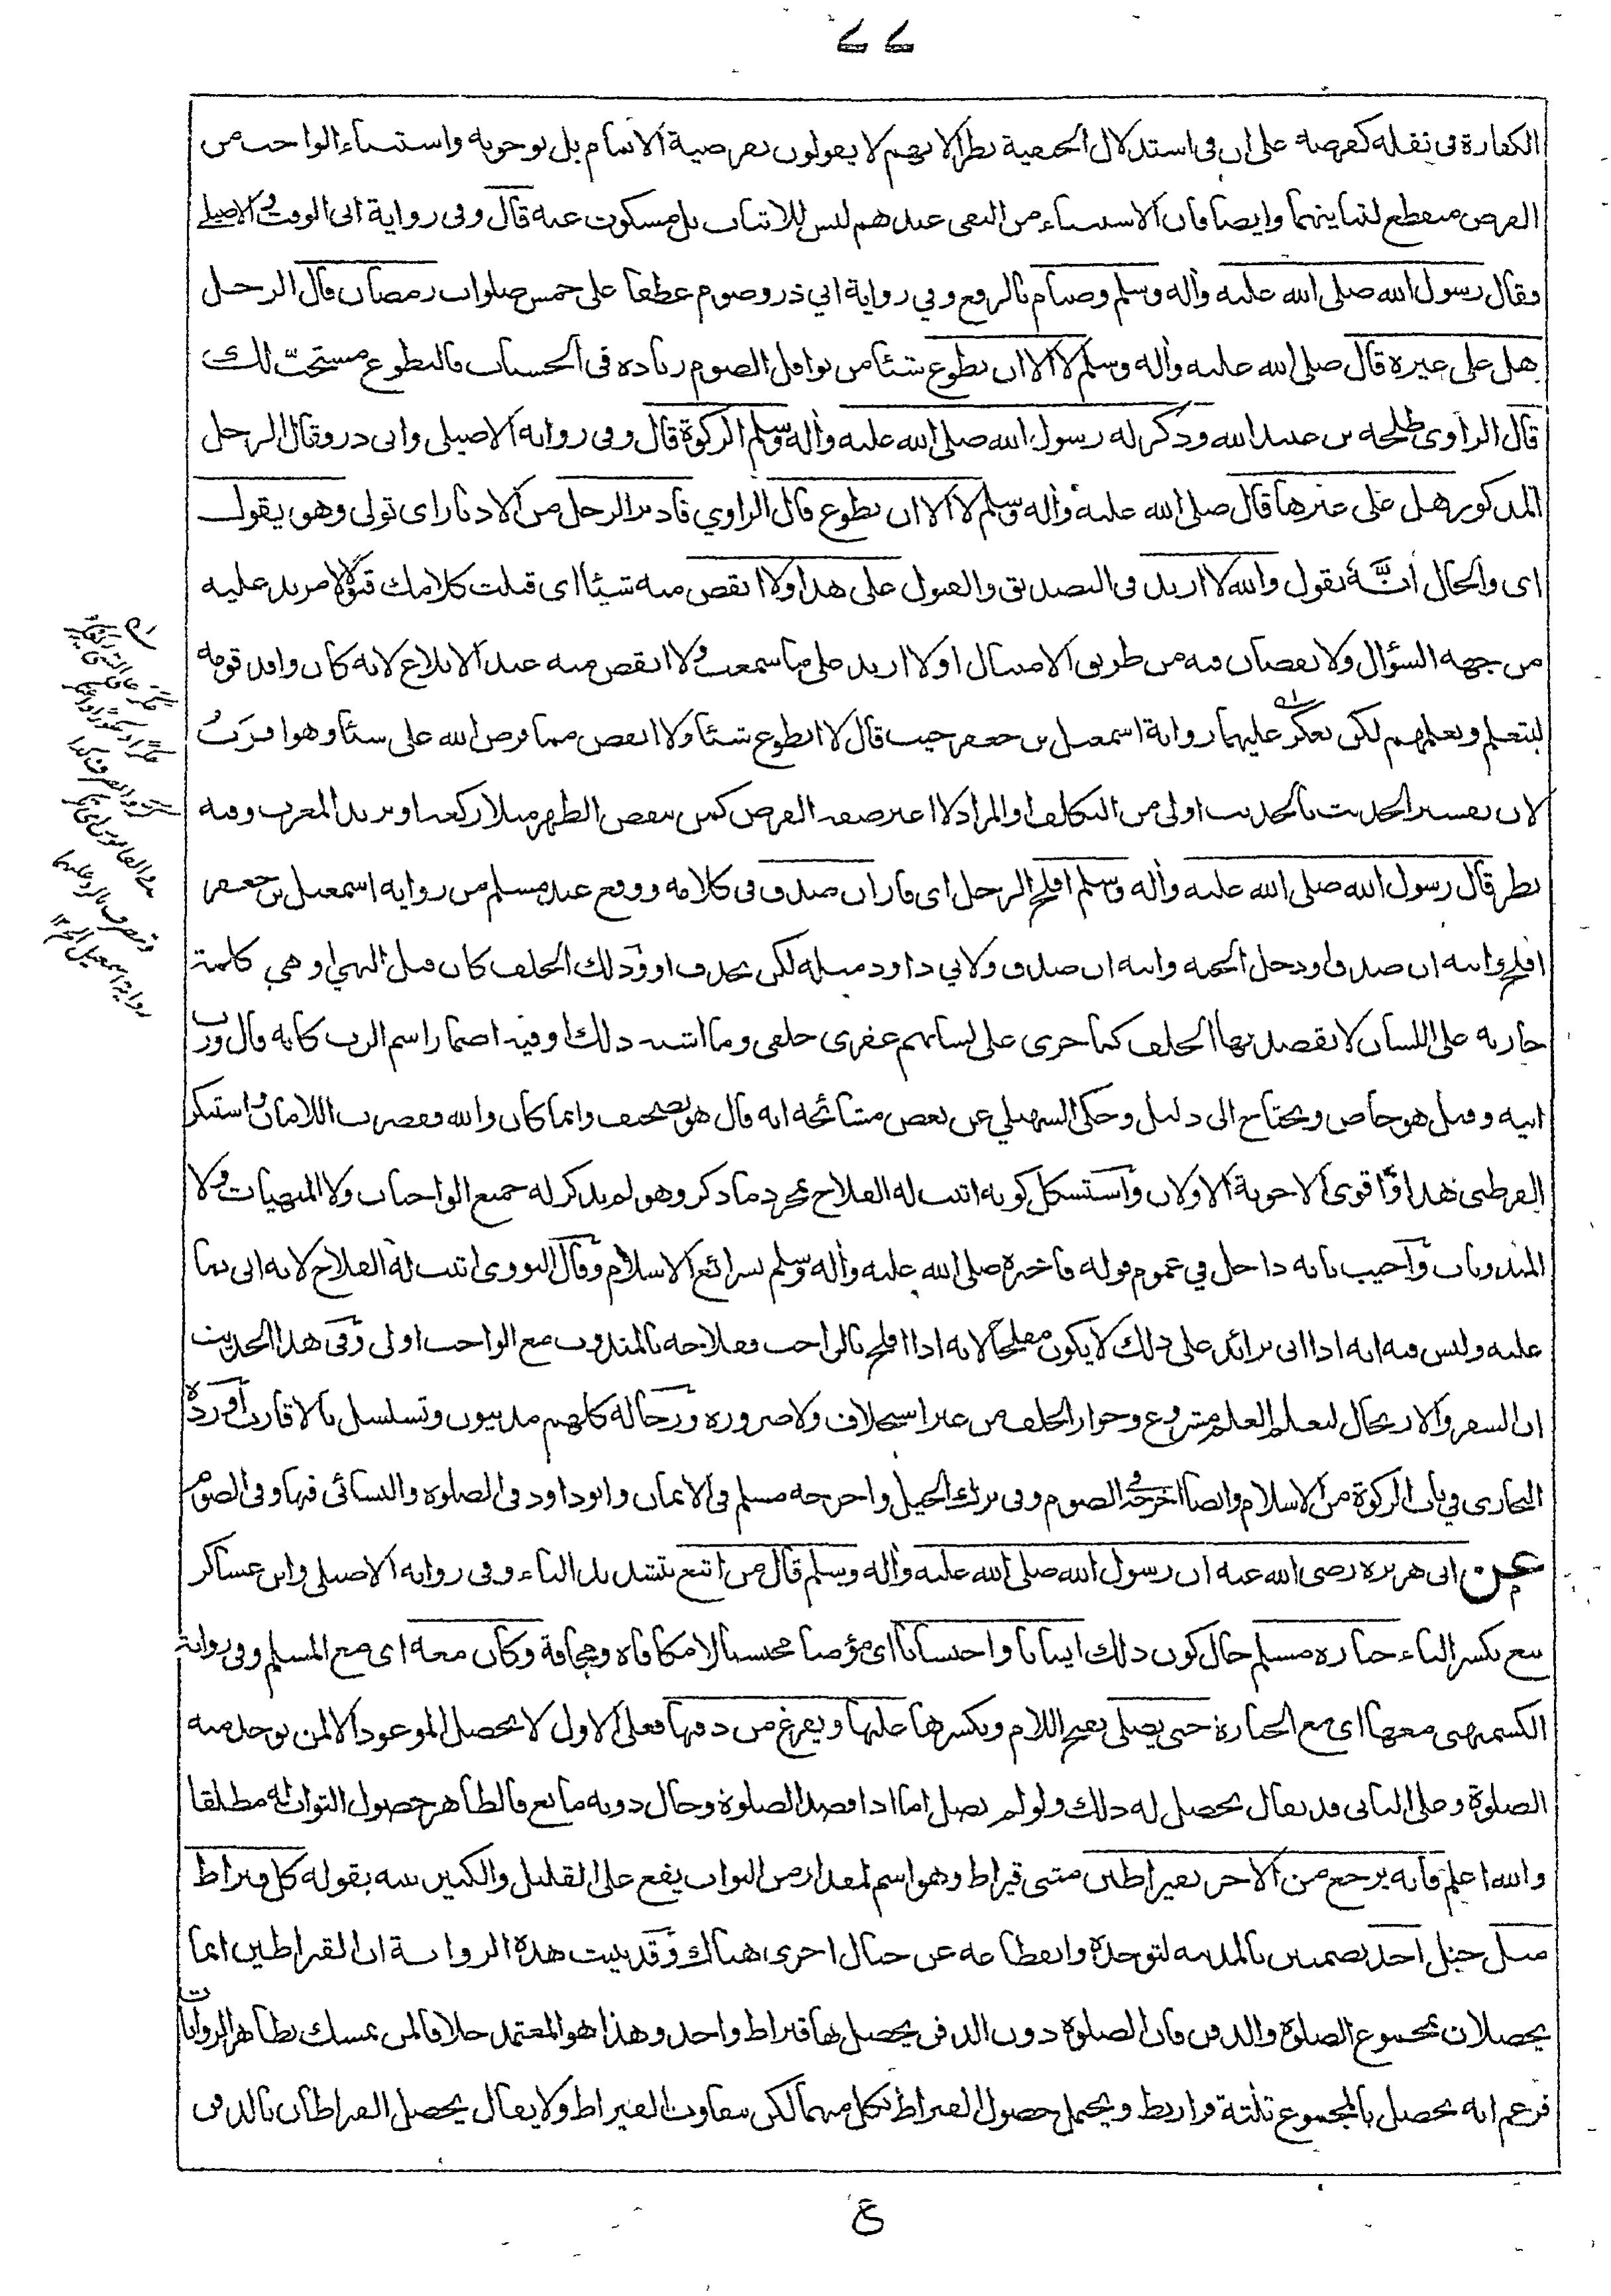 ٧٧
الكفارة فى نفله كفرضه على ان فى استدلال الحنفية نظرا لانهم لا يقولون بفرضية الاتمام بل بوجوبه واستثناء الواجب من
الفرض منقطع لتباينهما وايضا فان الاستثناء من النفى عندهم ليس للاثبات بل مسكوت عنه قال وفى رواية ابى الوقت والاصيلى
وقال رسول الله صلى الله عليه وآله وسلم وصيام بالرفع وفى رواية ابي ذر وصوم عطفا على خمس صلوات رمضان قال الرجل
هل على غيره قال صلى الله عليه وآله وسلم لا الا ان تطوع شيئا من نوافل الصوم زيادة فى الحسنات فالتطوع مستحبّ لك
قال الراوى طلحه بن عبيد الله وذكر له رسول الله صلى الله عليه وآله وسلم الزكوة قال وفى رواية الاصيلى وابى ذر وقال الرجل
المذكور هل على غيرها قال صلى الله عليه وآله وسلم لا الا ان تطوع قال الراوي فادبر الرجل من الادبار اى تولى وهو يقول
اى والحال انَّهُ يقول والله لا ازيد فى التصديق والقبول على هذا ولا انقص منه شيئا اى قبلت كلامك قبولا لا مزيد عليه
من جهه السؤال ولا نقصان فيه من طريق الامتثال او لا ازيد على ما سمعت ولا انقص منه عند الابلاغ لانه كان وافد قومه
ليتعلم ويعلمهم لكن يعكر عليهما رواية اسمعيل بن جعفر حيث قال لا اتطوع شيئا ولا انقص مما فرض الله على شيئا وهو اقربُ
لان تفسير الحديث بالحديث اولى من التكلف او المراد لا اغير صفة الفرض كمن ينقص الظهر مثلا ركعة او يزيد المغرب وفيه
نظر قال رسول الله صلى الله عليه وآله وسلم افلح الرجل اى فاز ان صدق فى كلامه ووقع عند مسلم من رواية اسمعيل بن جعفر
افلح وابيه ان صدق او دخل الجنة وابيه ان صدق ولابي داود مثله لكن بحذف او وذلك الحلف كان قبل النهى او هى كلمة
جارية على اللسان لا يقصد بها الحلف كما جرى على لسانهم عقرى حلقى وما اشبه ذلك او فيه اضمار اسم الرب كانه قال ورب
ابيه وقيل هو خاص ويحتاج الى دليل وحكى السهيلي عن بعض مشائخه انه قال هو تصحيف وانما كان والله فقصرت اللامان واستنكر
القرطبى هذا واقوى الاجوبة الاولان واستشكل كونه اثبت له الفلاح بمجرد ما ذكر وهو لم يذكر له جميع الواجبات ولا المنهيات ولا
المندوبات واجيب بانه داخل في عموم قوله فاخبره صلى الله عليه وآله وسلم بشرائع الاسلام وقال النووى اثبت له الفلاح لانه اتى بما
عليه وليس فيه انه اذا اتى بزائد على ذلك لا يكون مفلحا لانه اذا افلح بالواجب ففلاحه بالمندوب مع الواجب اولى وفى هذا الحديث
ان السفر والارتحال لتعلم العلم مشروع وجواز الحلف من غير استحلاف ولا ضرورة ورجاله كلهم مدنيون وتسلسل بالاقارب اورده
البخارى في باب الزكوة من الاسلام وايضا اخرجه فى الصوم وفى ترك الحيل واخرجه مسلم فى الايمان وابو داود فى الصلوة والنسائى فيها وفى الصوم
عن ابى هريرة رضى الله عنه ان رسول الله صلى الله عليه وآله وسلم قال من اتبع بتشديد التاء وفى رواية الاصيلى وابن عساكر
تبع بكسر الباء جنازة مسلم حال كون ذلك ايمانا واحتسابا اى مؤمنا محتسبا لا مكافاة ومخافة وكان معه اى مع المسلم وفى رواية
الكشميهنى معها اى مع الجنازة حتى يصلى بفتح اللام وبكسرها عليها ويفرغ من دفنها فعلى الاول لا يحصل الموعود الا لمن توجد منه
الصلوة وعلى الثانى قد يقال يحصل له ذلك ولو لم يصل اما اذا قصد الصلوة وحال دونه مانع فالظاهر حصول الثواب له مطلقا
والله اعلم فانه يرجع من الاجر بقيراطين مثنى قيراط وهو اسم لمقدار من الثواب يقع على القليل والكثير بينه بقوله كل قيراط
مثل جبل احد بضمتين بالمدينه لتوحده وانقطاعه عن جبال اخرى هناك وقد بينت هذه الرواية ان القيراطين انما
يحصلان بمجموع الصلوة والدفن فان الصلوة دون الدفن يحصل بها قيراط واحد وهذا هو المعتمد خلافا لمن تمسك بظاهر الروايات
فزعم انه يحصل بالمجموع ثلثة قراريط ويحتمل حصول القيراط بكل منهما لكن يتفاوت القيراط ولا يقال يحصل القيراطان بالدفن
ع